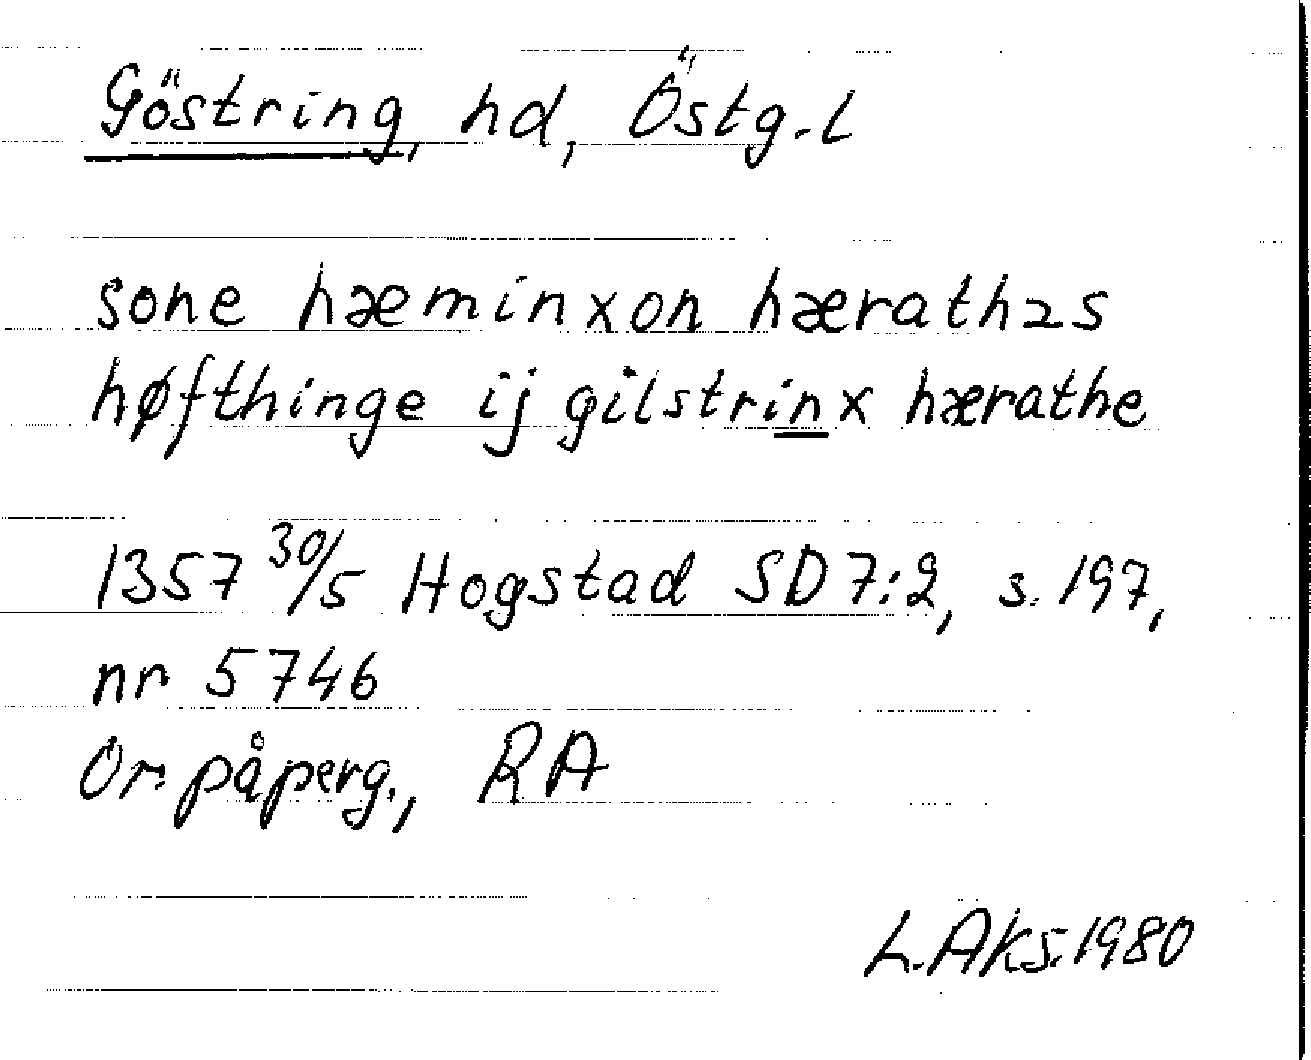 Göstring, hd, Östg.l
sone hæminxon hærathzs
høfthinge ij gilstrinx hærathe
1357 30/5 Hogstad SD 7:2, s. 197,
nr 5746
Or. på perg., RA
L. Aks. 1980